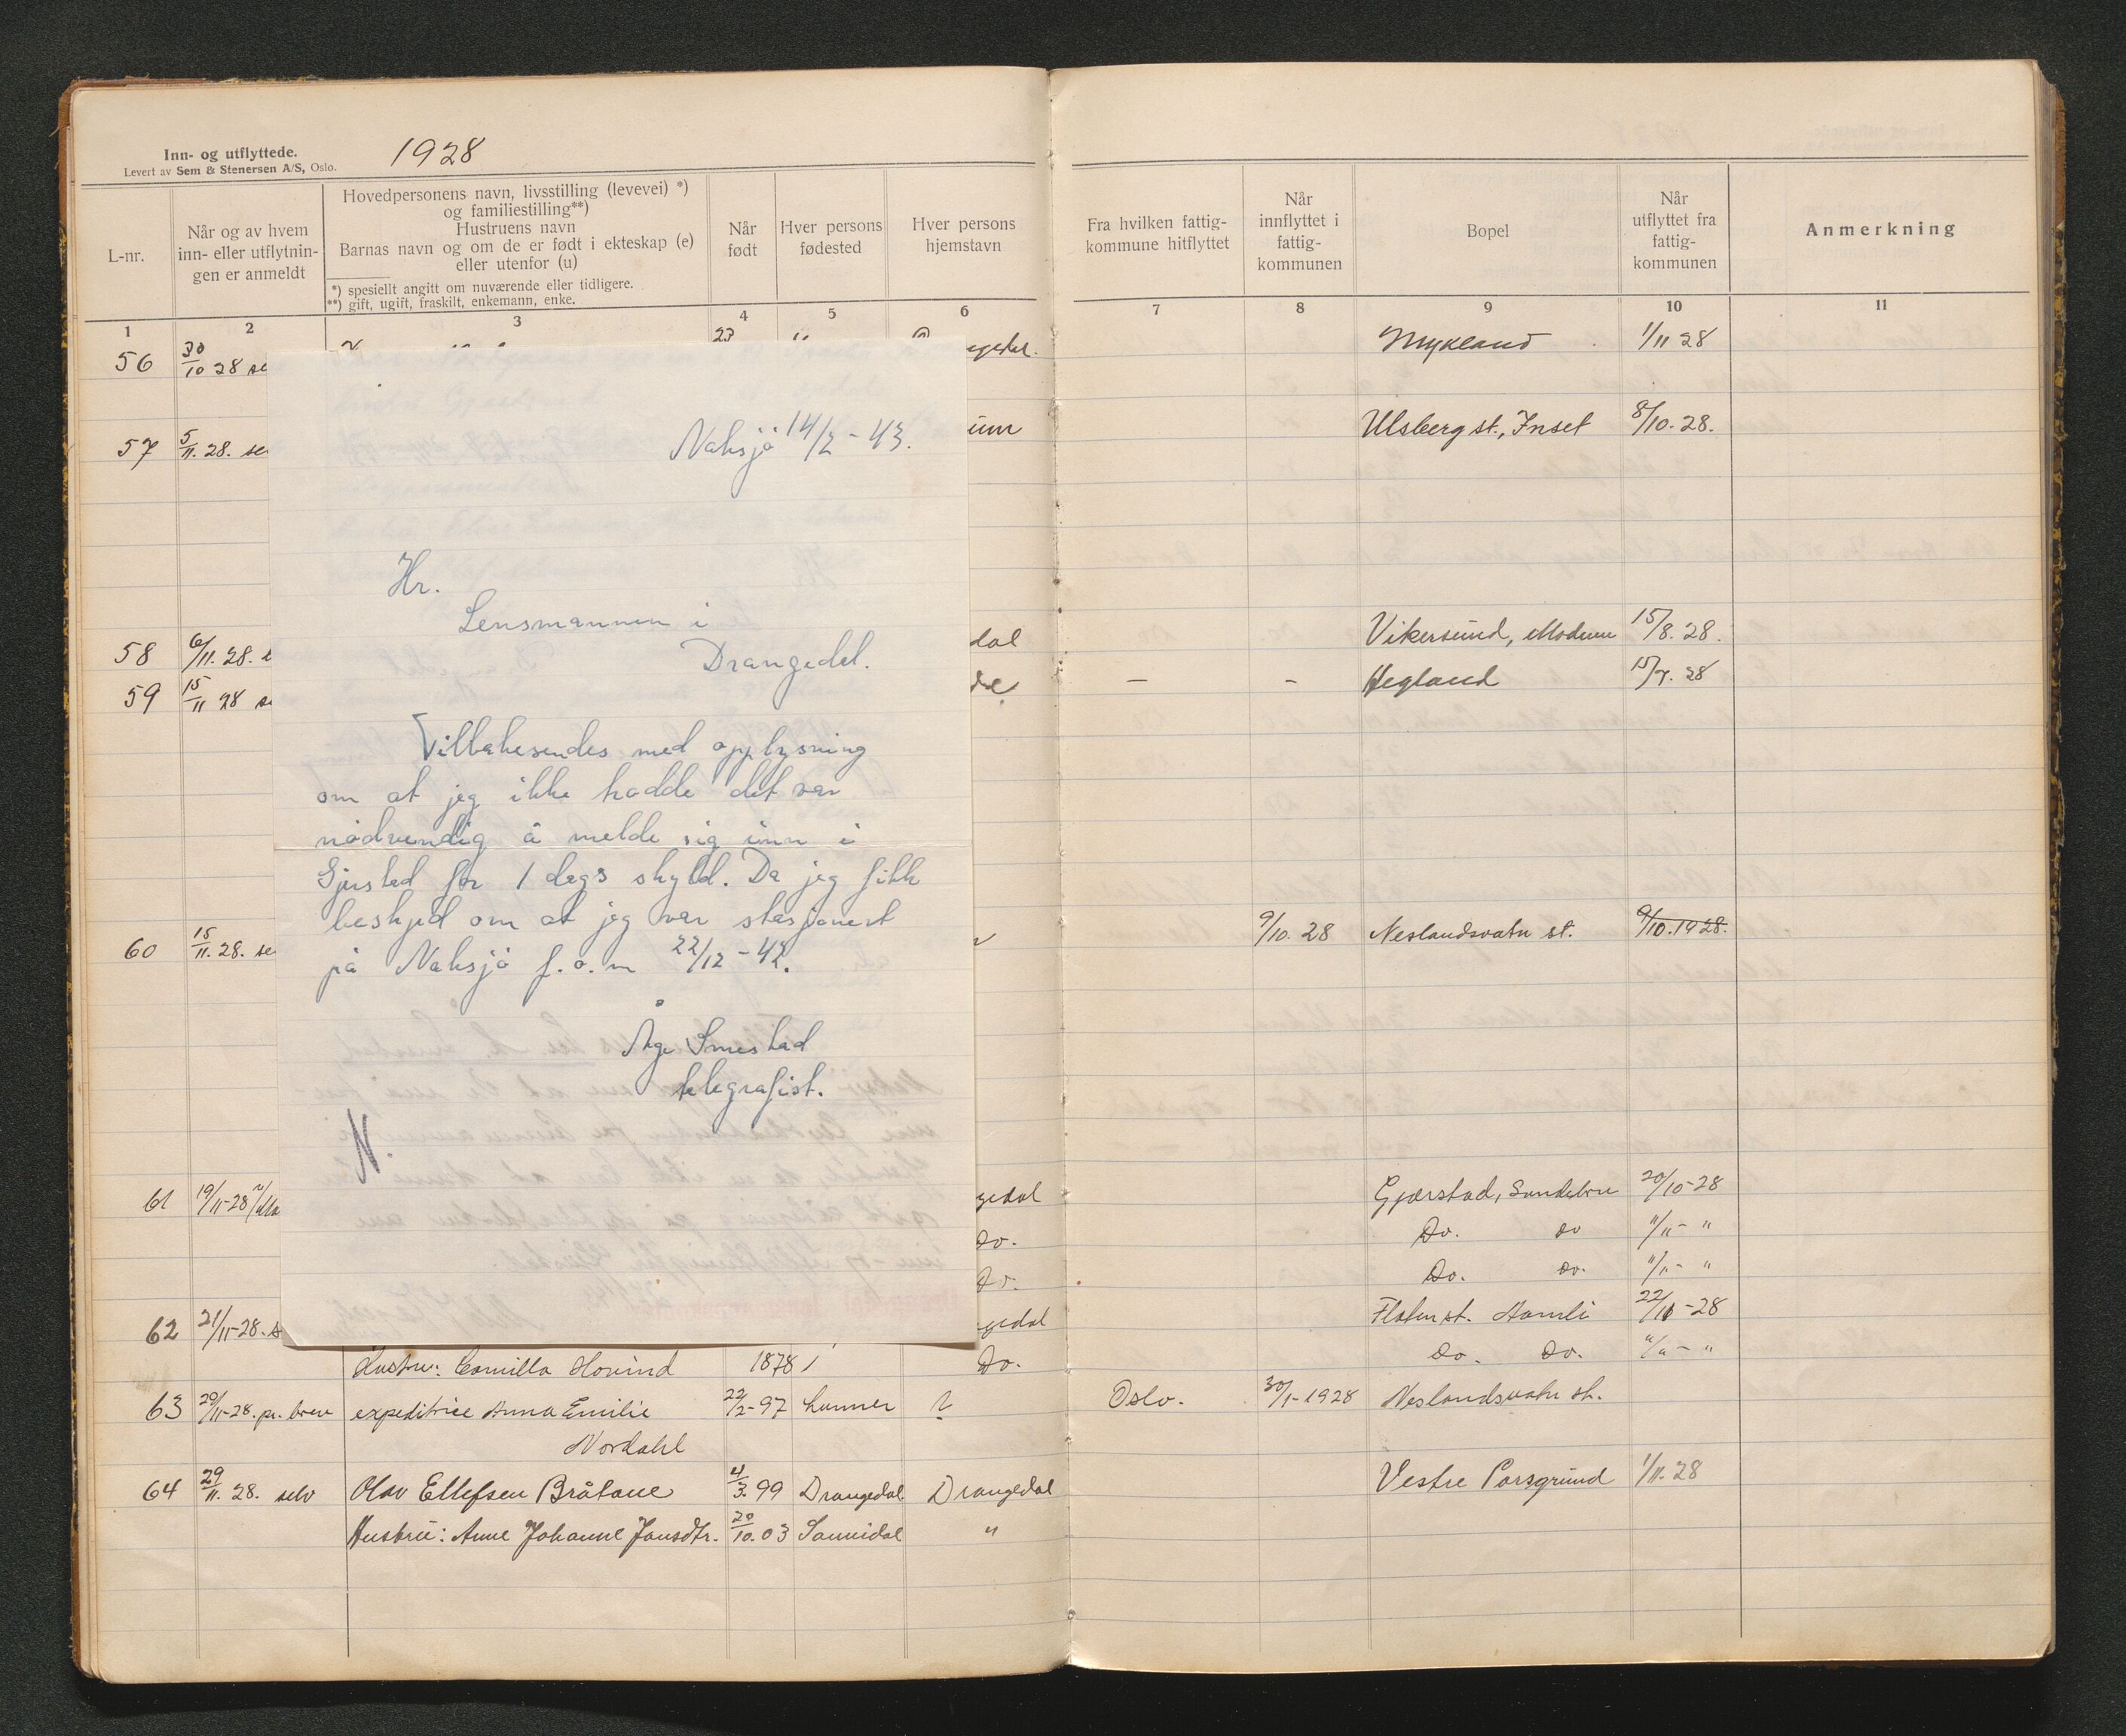 Inn- og utflyttede.
Levert av Sem & Stenersen A/S, Oslo.
1928
L-nr.
Når og av hvem
inn- eller utflytnin-
gen er anmeldt
Hovedpersonens navn, livsstilling (levevei) *)
og familiestilling**)
Hustruens navn
Barnas navn og om de er født i ekteskap (e)
eller utenfor (u)
*) spesiellt angitt om nuværende eller tidligere.
**) gift, ugift, fraskilt, enkemann, enke.
Når
født
Hver persons
fødested
Hver persons
hjemstavn
Fra hvilken fattig-
kommune hitflyttet
Når
innflyttet i
fattig-
kommunen
Bopel
Når
utflyttet fra
fattig-
kommunen
Anmerkning
1 2 3 4 5 6 7 8 9 10 11
56 30/10 28 se 23 gedal. Mykland 1/11 28
57 5/11. 28. se um Ulsberg st., Inset 8/10. 28.
58 6/11. 28. dal Vikersund, Modum 15/8. 28.
59 15/11 28 se de. — – Hegland 15/7. 28
60 15/11. 28. se 9/10. 28 Neslandsvatn st. 9/10. 1928.
61 19/11-28 gedal Gjærstad, Sundebru 20/10-28
Do. Do. do "/11- "
Do. Do. do. "/11- "
62 21/11-28. s gedal Flaten st. Aamli 22/10-28
Hustru: Camilla Hovind 1878 Do. Do. Do. "/11- "
63 20/11-28. pr. brev expeditrice Anna Emilie 22/2-97 Lunner ? Oslo. 30/1-1928 Neslandsvatn st.
Nordahl
64 29/11. 28. selv Olav Ellefsen Bråtane 4/3. 99 Drangedal Drangedal Vestre Porsgrund 1/11. 28
Hustru: Anne Johanne Jonsdtr. 20/10. 03 Sannidal "
Naksjø 14/2-43.
Hr.
Lensmannen i
Drangedal.
Tilbakesendes med opplysning
om at jeg ikke hadde det var
nødvendig å melde sig inn i
Gjerstad for 1 dags skyld. Da jeg fikk
beskjed om at jeg var stasjonert
på Naksjø f.o.m 22/12-42.
Åge Smestad
telegrafist.
N.